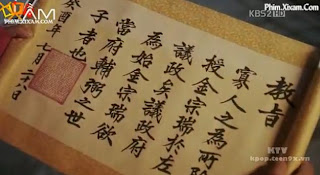 Phim.Xixam.Com
Phim.Xixam.Com
KBS2 HD
教旨
寡人之為所
授金宗瑞於左
議政矣議政府
為始金宗瑞欲
當府輔弼之世
子者也
癸酉年七月
KTV
kpop.teen9x.vn